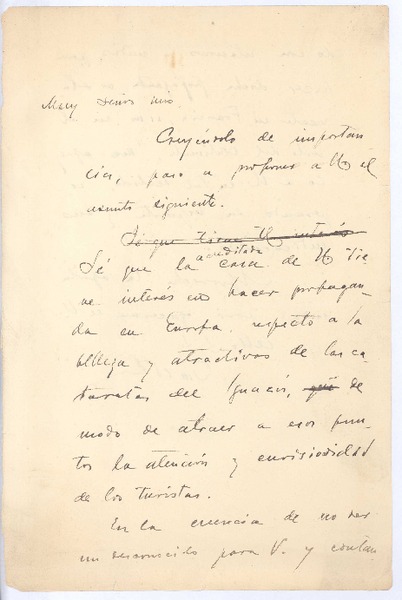 Muy señor mio
Creyéndolo de importan
cia, paso a proponer a U el
asunto siguiente.
Sé que tiene U interés
acreditada
Sé que la casa de U tie
ne interés en hacer propagan
da en Europa respecto a la
belleza y atractivos de las ca
taratas del Iguazú, que de
modo de atraer a esos pun
tos la atención y curiosidad
de los turistas.
En la creencia de no ser
un desconocido para V. y contan